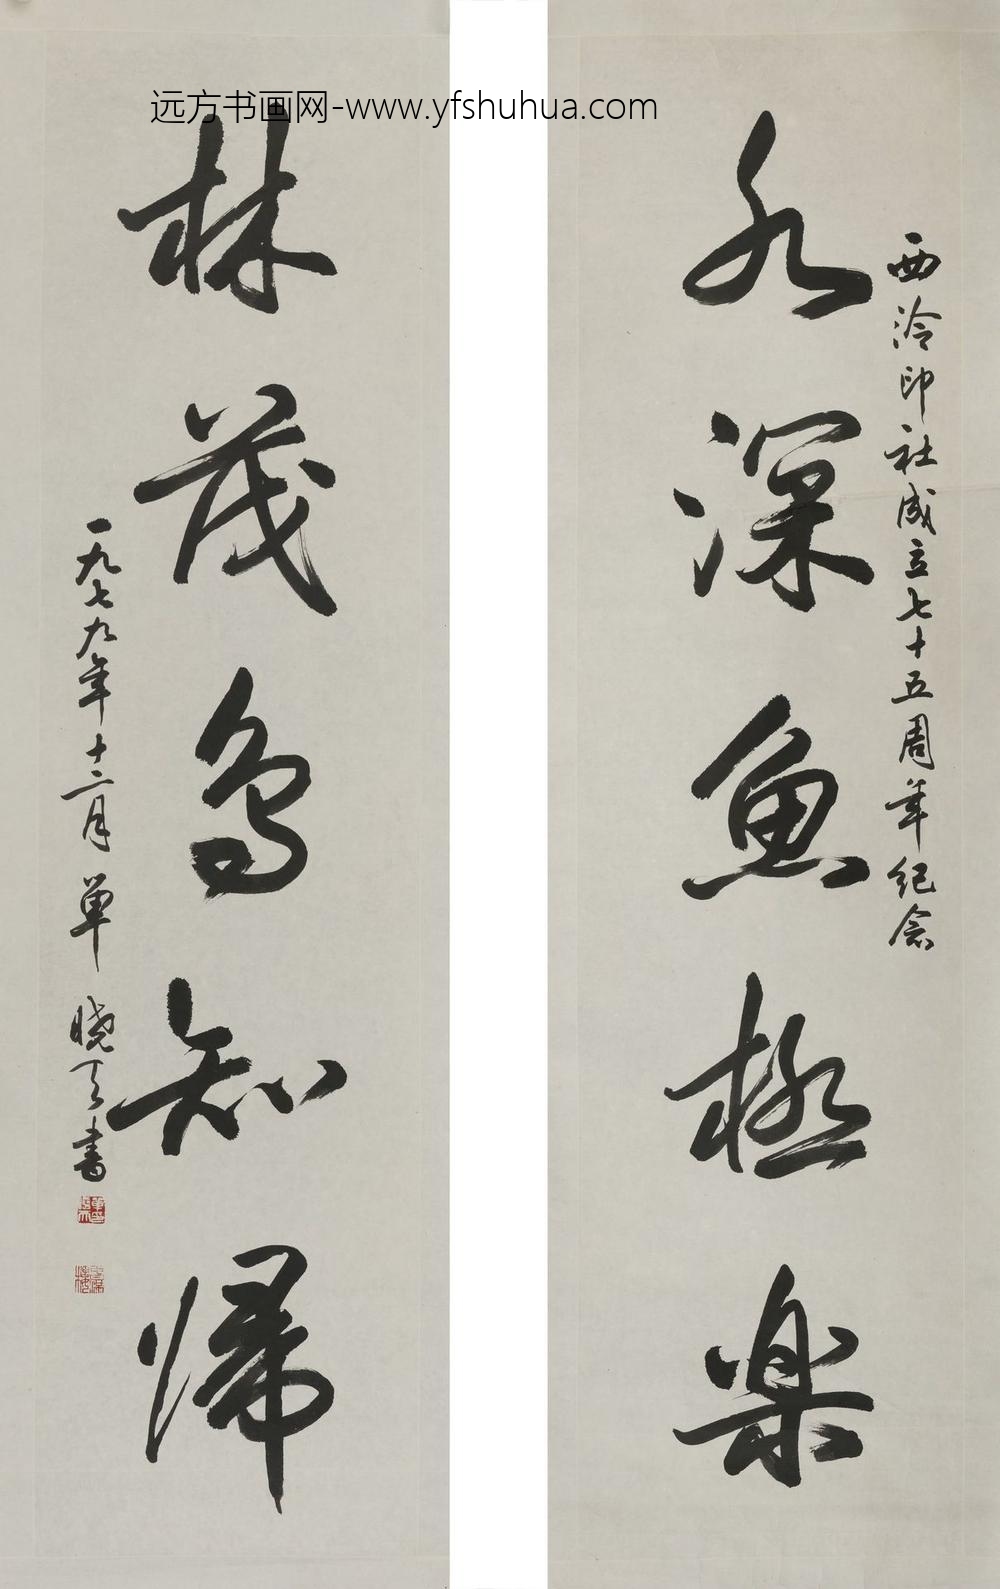 远方书画网-www.yfshuhua.com
西泠印社成立七十五周年纪念
水深魚極楽
林茂鸟知歸
一九七九年十二月單晓天書